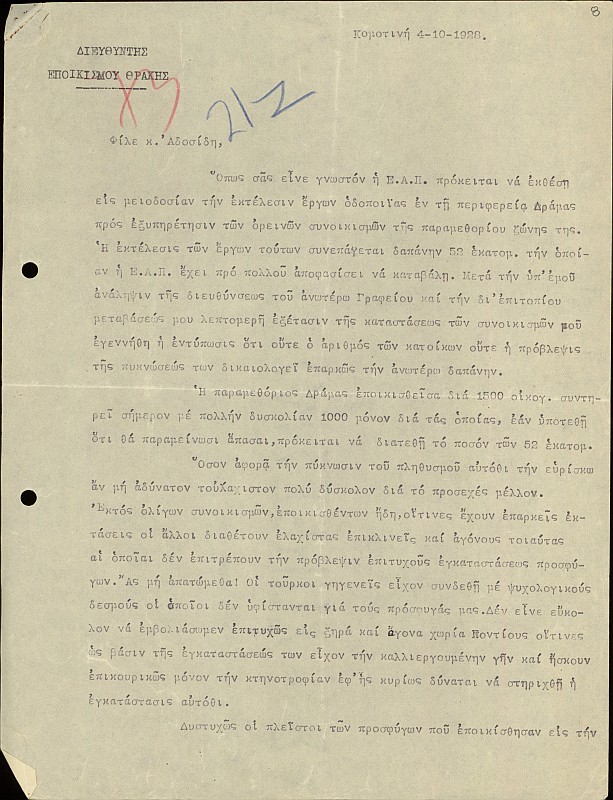 8
Κομοτινή 4-10-1928.
ΔΙΕΥΘΥΝΤΗΣ
ΕΠΟΙΚΙΣΜΟΥ ΘΡΑΚΗΣ
212
Φίλε κ.'Αδοσίδη,
Ὅπως σᾶς εἶνε γνωστόν ἡ Ε.Α.Π. πρόκειται νά ἐκθέσῃ
εἰς μειοδοσίαν τήν ἐκτέλεσιν ἔργων ὁδοποιΐας ἐν τῇ περιφερείᾳ Δράμας
πρός ἐξυπηρέτησιν τῶν ὀρεινῶν συνοικισμῶν τῆς παραμεθορίου ζώνης της.
Ἡ ἐκτέλεσις τῶν ἔργων τούτων συνεπάγεται δαπάνην 52 ἑκατομ. τήν ὁποί-
αν ἡ Ε.Α.Π. ἔχει πρό πολλοῦ ἀποφασίσει νά καταβάλῃ. Μετά τήν ὑπ'ἐμοῦ
ἀνάληψιν τῆς διευθύνσεως τοῦ ἀνωτέρω Γραφείου καί τήν δι'ἐπιτοπίου
μεταβάσεώς μου λεπτομερῆ ἐξέτασιν τῆς καταστάσεως τῶν συνοικισμῶν μοῦ
ἐγεννήθη ἡ ἐντύπωσις ὅτι οὔτε ὁ ἀριθμός τῶν κατοίκων οὔτε ἡ πρόβλεψις
τῆς πυκνώσεώς των δικαιολογεῖ ἐπαρκῶς τήν ἀνωτέρω δαπάνην.
Ἡ παραμεθόριος Δράμας ἐποικισθεῖσα διά 1500 οἰκογ. συντη-
ρεῖ σήμερον μέ πολλήν δυσκολίαν 1000 μόνον διά τάς ὁποίας, ἐάν ὑποτεθῇ
ὅτι θά παραμείνωσι ἅπασαι,πρόκειται νά διατεθῇ τό ποσόν τῶν 52 ἑκατομ.
Ὅσον ἀφορᾷ τήν πύκνωσιν τοῦ πληθυσμοῦ αὐτόθι τήν εὑρίσκω
ἄν μή ἀδύνατον τοὐλάχιστον πολύ δύσκολον διά τό προσεχές μέλλον.
Ἐκτός ὀλίγων συνοικισμῶν,ἐποικισθέντων ἤδη,οἵτινες ἔχουν ἐπαρκεῖς ἐκ-
τάσεις οἱ ἄλλοι διαθέτουν ἐλαχίστας ἐπικλινεῖς καί ἀγόνους τοιαύτας
αἱ ὁποῖαι δέν ἐπιτρέπουν τήν πρόβλεψιν ἐπιτυχοῦς ἐγκαταστάσεως προσφύ-
γων.Ἄς μή ἀπατώμεθα! Οἱ τοῦρκοι γηγενεῖς εἶχον συνδεθῇ μέ ψυχολογικούς
δεσμούς οἱ ὁποῖοι δέν ὑφίστανται γιά τούς πρόσφυγάς μας.Δέν εἶνε εὔκο-
λον νά ἐμβολιάσωμεν ἐπιτυχῶς εἰς ξηρά καί ἄγονα χωρία Ποντίους οἵτινες
ὡς βάσιν τῆς ἐγκαταστάσεώς των εἶχον τήν καλλιεργουμένην γῆν καί ἤσκουν
ἐπικουρικῶς μόνον τήν κτηνοτροφίαν ἐφ'ἧς κυρίως δύναται νά στηριχθῇ ἡ
ἐγκατάστασις αὐτόθι.
Δυστυχῶς οἱ πλεῖστοι τῶν προσφύγων πού ἐποικίσθησαν εἰς τήν